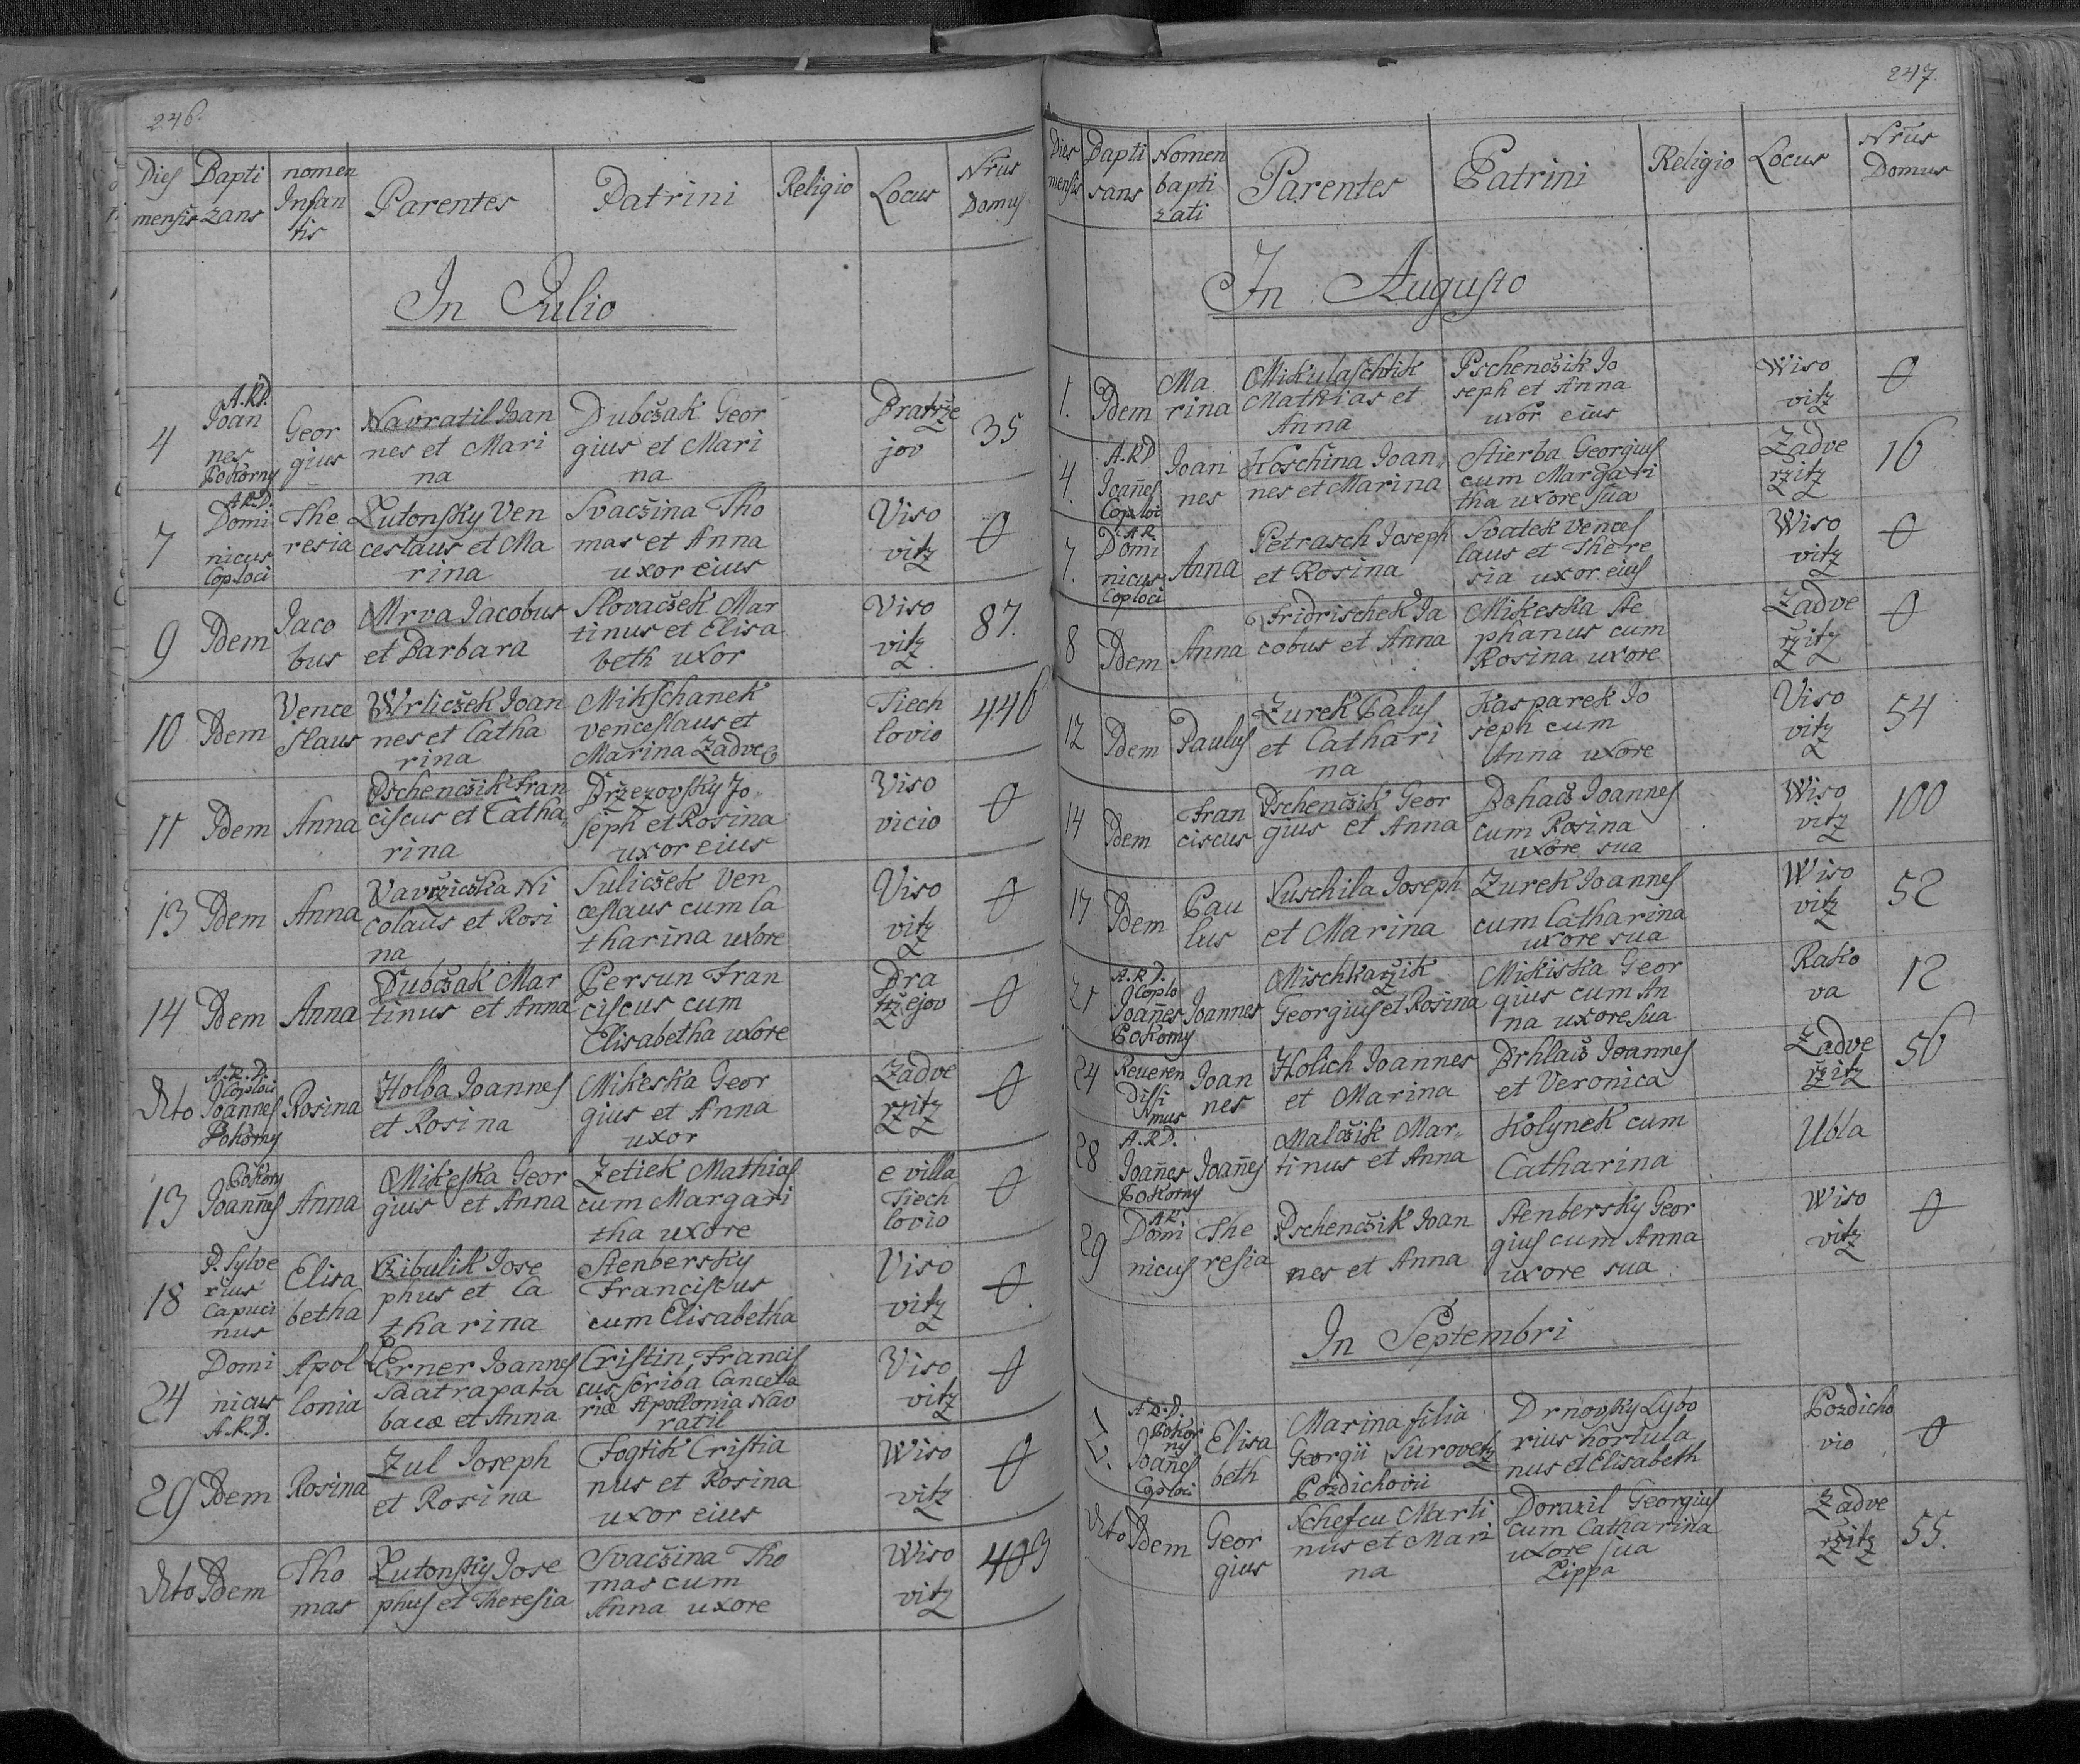 246.
Dies mensis
Baptizans
nomen Infantis
Parentes
Patrini
Religio
Locus
Nrus Domus
In Julio
4
A.R.D. Joannes Pokorny
Georgius
Navratil Joannes et Marina
Dubcžak Georgius et Marina
Bratržejov
35
7
A.R.D. Dominicus Cop loci
Theresia
Lutonsky Venceslaus et Marina
Svacžina Thomas et Anna uxor eius
Visovitz
0
9
Idem
Jacobus
Mrva Jacobus et Barbara
Slovacžek Martinus et Elisabeth uxor
Visovitz
87.
10
Idem
Venceslaus
Wrlicžek Joannes et Catharina
Mikschanek venceslaus et Marina Zadve
Tiechlovio
446
11
Idem
Anna
Pschencžik Franciscus et Catharina
Bržezovsky Joseph et Rosina uxor eius
Visovicio
0
13
Idem
Anna
Vavržicžka Nicolaus et Rosina
Sulicžek Venceslaus cum Catharina uxore
Visovitz
0
14
Idem
Anna
Dubcžak Martinus et Anna
Persun Franciscus cum Elisabetha uxore
Bratržejov
0
dto
A.R.D. Cop loci Joannes Pokorny
Rosina
Holba Joannes et Rosina
Mikeska Georgius et Anna uxor
Zadverzitz
0
13
Pokorny Joannes
Anna
Mikeska Georgius et Anna
Zetiek Mathias cum Margaritha uxore
e villa Tiechlovio
0
18
P. Sylverius Capucinus
Elisabetha
Czibulik Josephus et Catharina
Stenbersky Franciscus cum Elisabetha
Visovitz
0.
24
Dominicus A.R.D.
Apollonia
Erner Joannes Saatrapa tabacæ et Anna
Cristin Franciscus scriba Cancellariæ Apollonia Navratil
Visovitz
0
29
Idem
Rosina
Zul Joseph et Rosina
Fogtik Cristianus et Rosina uxor eius
Wisovitz
0
dto
Idem
Thomas
Lutonsky Josephus et Theresia
Svacžina Thomas cum Anna uxore
Wisovitz
409
247.
Dies mensis
Baptisans
Nomen baptizati
Parentes
Patrini
Religio
Locus
Nrus Domus
In Augusto
1.
Idem
Marina
Mikulaschtik Mathias et Anna
Pschencžik Joseph et Anna uxor eius
Wisovitz
0
4.
A.R.D Joañes Cop loci
Joannes
Hoschina Joannes et Marina
Stierba Georgius cum Margaritha uxore sua
Zadverzitz
16
7.
A.R. Dominicus Cop loci
Anna
Petrasch Joseph et Rosina
Svatek Venceslaus et Theresia uxor eius
Wisovitz
0
8
Idem
Anna
Fridrischek Jacobus et Anna
Mikeska Stephanus cum Rosina uxore
Zadverzitz
0
12
Idem
Paulus
Zurek Palus et Catharina
Kasparek Joseph cum Anna uxore
Visovitz
54
14
Idem
Franciscus
Pschencžik Georgius et Anna
Bohacž Joannes cum Rosina uxore sua
Wisovitz
100
17
Idem
Paulus
Luschila Joseph et Marina
Zurek Joannes cum Catharina uxore sua
Wisovitz
52
21
A.R.D. Cop lo Joañes Pokorny
Joannes
Mischkaržik Georgius et Rosina
Mikiska Georgius cum Anna uxore sua
Rakova
12
24
Reverendissimus
Joannes
Holich Joannes et Marina
Brhlacž Joannes et Veronica
Zadverzitz
56
28
A.R.D. Joañes Pokorny
Joañes
Malcžik Martinus et Anna
Kolynek cum Catharina
Ubla
29
A.R. Dominicus
Theresia
Pschencžik Joannes et Anna
Stenbersky Georgius cum Anna uxore sua
Wisovitz
0
In Septembri
A.R.D. Pokorny Joañes Cop loci
Elisabeth
Marina filia Georgii Surovetz Pozdichovii
Drnovsky Lyborius hortulanus et Elisabeth
Pozdichovio
0
dto
Idem
Georgius
Schefcu Martinus et Marina
Dorazil Georgius cum Catharina uxore sua Lippa
Zadverzitz
55.